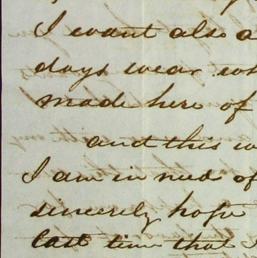 I want also a
days wear
made here of
and this
I am in need of
sincerely hope
last time that I